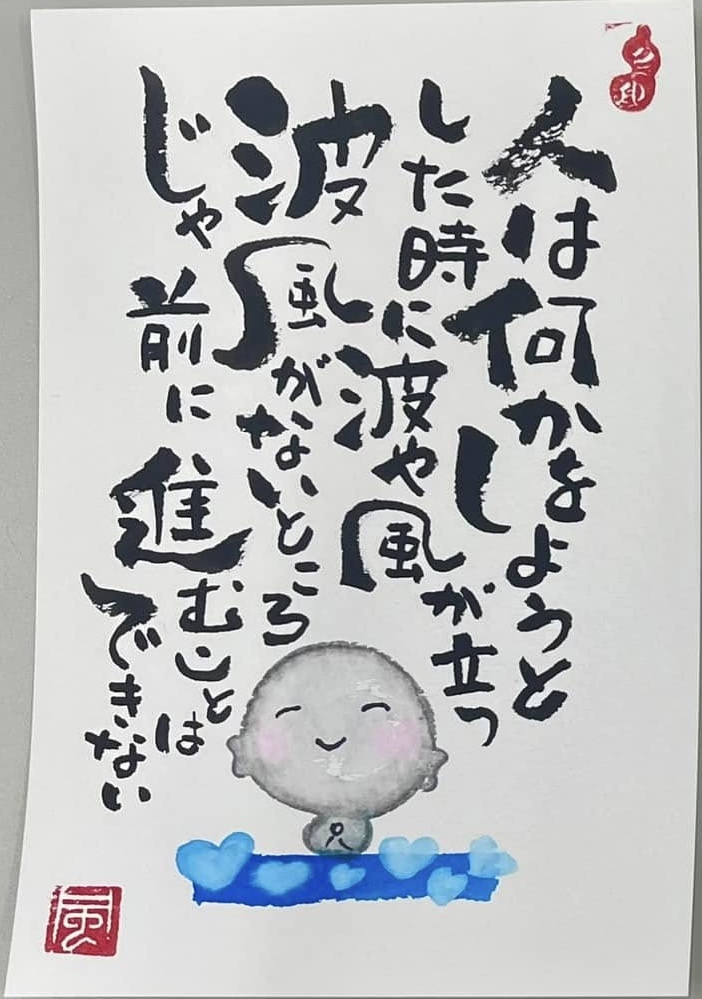 人は何かをしようと
した時に波や風が立つ
波風がないところ
じゃ前に進むことは
できない
風